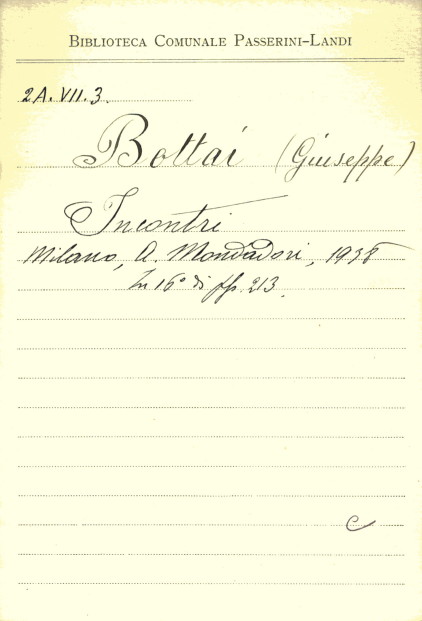 BIBLIOTECA COMUNALE PASSERINI-LANDI
2A.VII.3.
Bottai (Giuseppe)
Incontri
Milano, A. Mondadori, 1938
In 16° di pp. 213.
C